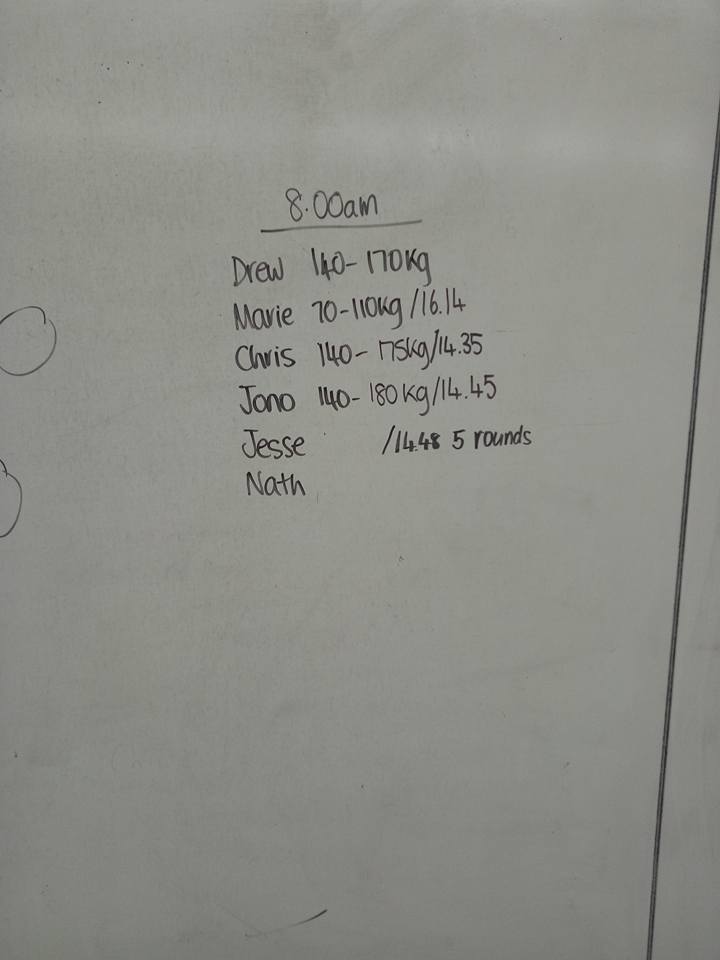 8.00am
Drew 140-170kg
Marie 70-110kg/16.14
Chris 140-175kg/14.35
Jono 140-180kg/14.45
Jesse /14.48 5 rounds
Nath